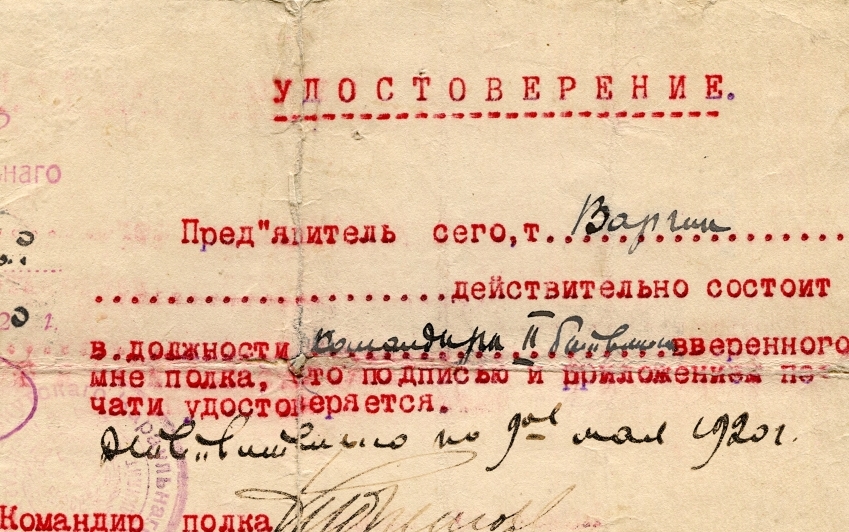 УДОСТОВЕРЕНИЕ.
ьнаго
Пред"явитель сего,т. Варгин
действительно состоит
в должности командира II вверенного
мне полка, что подписью и приложением пе-
чати удостоверяется.
Действительно по 9ое мая 1920 г.
Командир полка